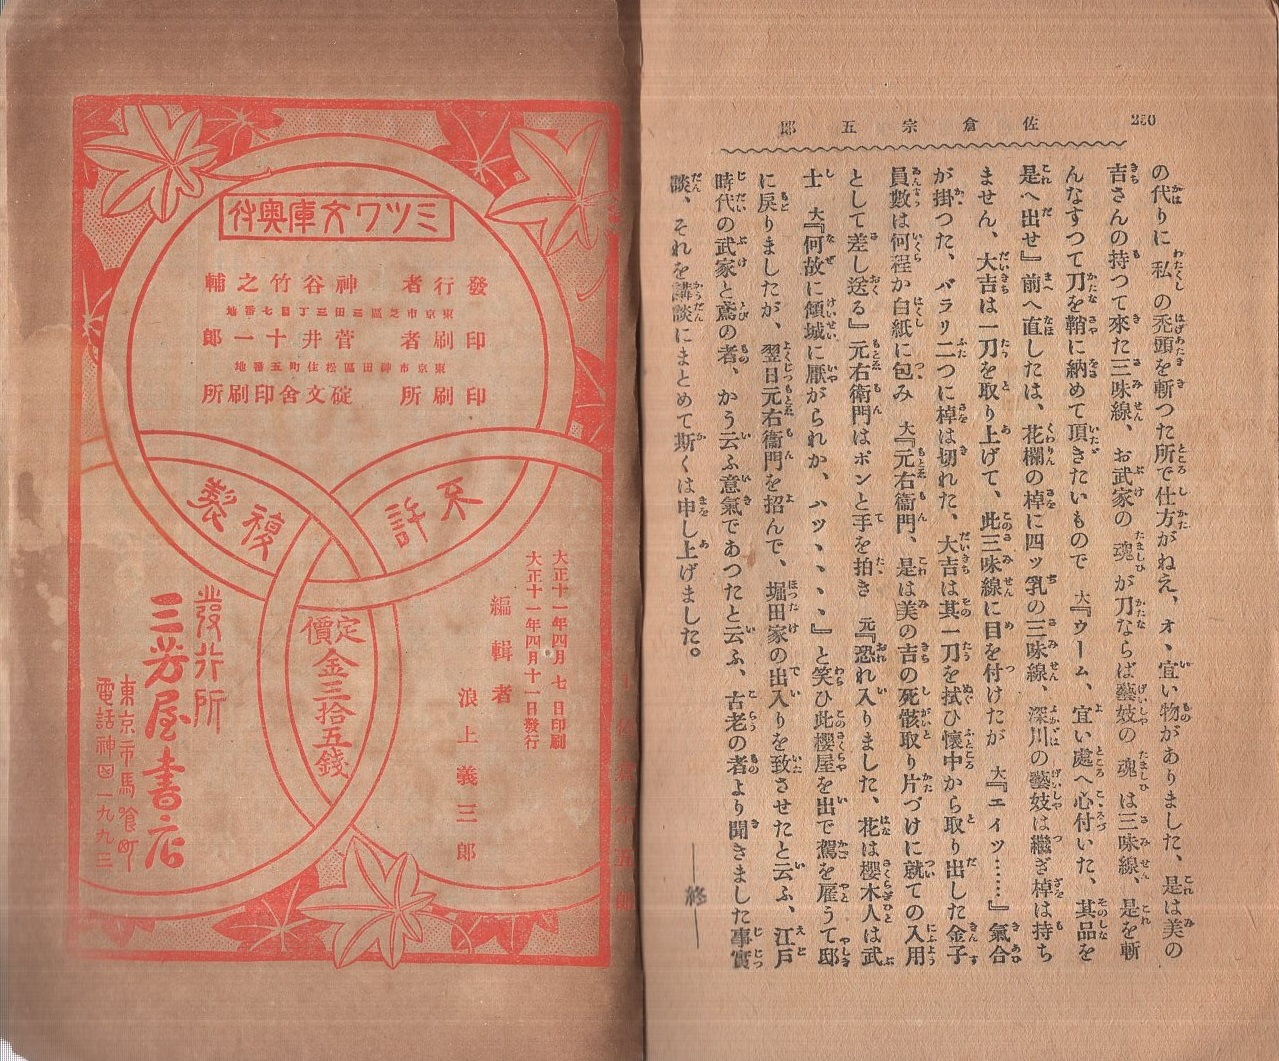 250
佐倉宗五郎
の代りに私の禿頭を斬つた所で仕方がねえ、オ、宜い物がありました、是は美の
吉さんの持つて來た三味線、お武家の魂が刀ならば藝妓の魂は三味線、是を斬
んなすつて刀を鞘に納めて頂きたいもので　大『ウーム、宜い處へ心付いた、其品を
是へ出せ』前へ直したは、花櫚の棹に四ッ乳の三味線、深川の藝妓は繼ぎ棹は持ち
ません、大吉は一刀を取り上げて、此三味線に目を付けたが　大『エイッ……』氣合
が掛つた、バラリ二つに棹は切れた、大吉は其一刀を拭ひ懷中から取り出した金子
員數は何程か白紙に包み　大『元右衞門、是は美の吉の死骸取り片づけに就ての入用
として差し送る』元右衞門はポンと手を拍き　元『恐れ入りました、花は櫻木人は武
士　大『何故に傾城に厭がられか、ハッ、、、、』と笑ひ此櫻屋を出で駕を雇うて邸
に戻りましたが、翌日元右衞門を招んで、堀田家の出入りを致させたと云ふ、江戸
時代の武家と鳶の者、かう云ふ意氣であつたと云ふ、古老の者より聞きました事實
談、それを講談にまとめて斯くは申し上げました。
――終――
ミツワ文庫奥付
發行者　神谷竹之輔
東京市芝區三田三丁目七番地
印刷者　菅井十一郎
東京市神田區松住町五番地
印刷所　碇文舍印刷所
不許
複製
大正十一年四月七日印刷
大正十一年四月十一日發行
編輯者
浪上義三郎
定價
金三拾五錢
發行所
三芳屋書店
東京市馬喰町
電話神田一九九三